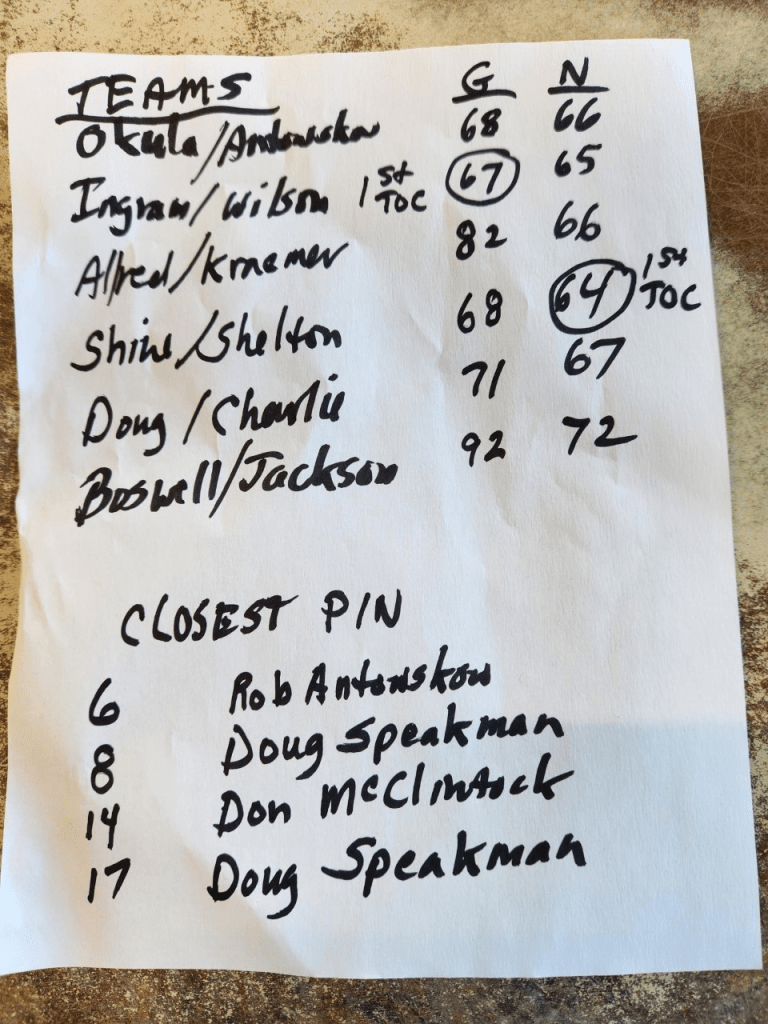 TEAMS G N
Okula/Antonskow 68 66
Ingram/Wilson 1st TOC 67 65
Alfred/Kraemer 82 66
Shine/Shelton 68 64 1st TOC
Doug/Charlie 71 67
Boswell/Jackson 92 72
CLOSEST PIN
6 Rob Antonskow
8 Doug Speakman
14 Don McClintock
17 Doug Speakman